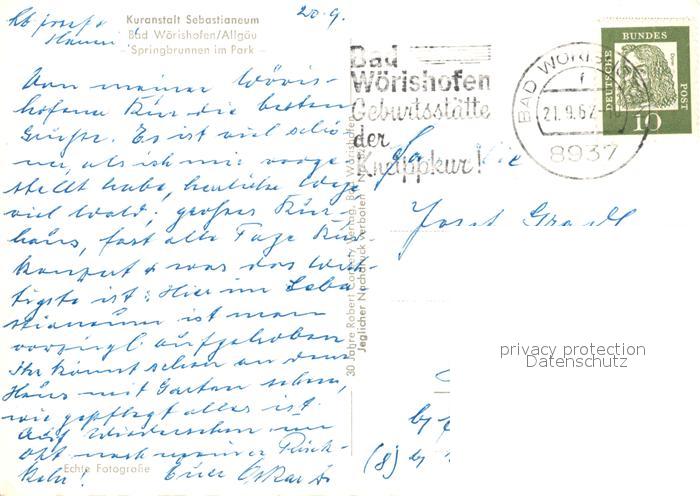 20.9.
Kuranstalt Sebastianeum
Bad Wörishofen/Allgäu
- Springbrunnen im Park -
Von meiner Wöris-
hofener Kur die besten
Grüße. Es ist viel schö-
ner, als ich mir vorge-
stellt habe, herrliche Wege
viel Wald, großes Kur-
haus, fast alle Tage Kur-
konzert & was das Wich-
tigste ist: Hier im Seba-
stianeum ist man
vorzügl. aufgehoben
Ihr könnt schon an dem
Haus mit Garten sehen,
wie gepflegt alles ist.
Auf Wiedersehen im
Okt nach meiner Rück-
kehr! Euer Oskar
Echte Fotografie
30 Jahre Robert Verlag, Bad Wörishofen
Jeglicher Nachdruck verboten
Bad
Wörishofen
Geburtsstätte
der
Kneippkur!
BAD WÖRISHOFEN
21.9.62
8937
DEUTSCHE BUNDESPOST
10
Familie
Josef
privacy protection
Datenschutz